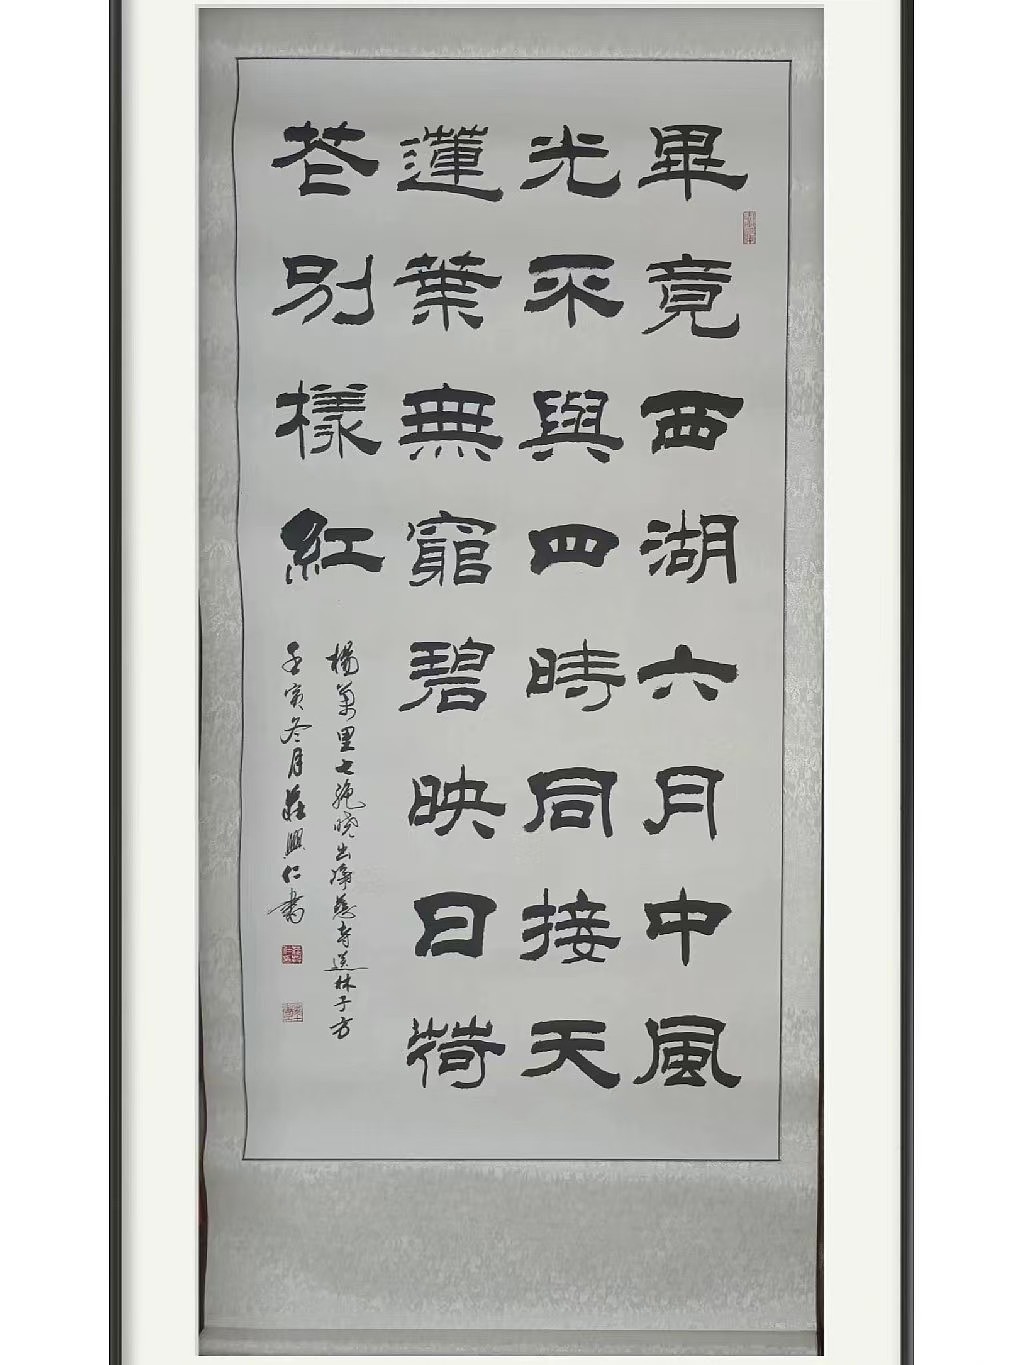 畢竟西湖六月中風
光不與四時同接天
蓮葉無窮碧映日荷
花別樣紅
楊萬里七絕曉出淨慈寺送林子方
壬寅冬月莊興仁書